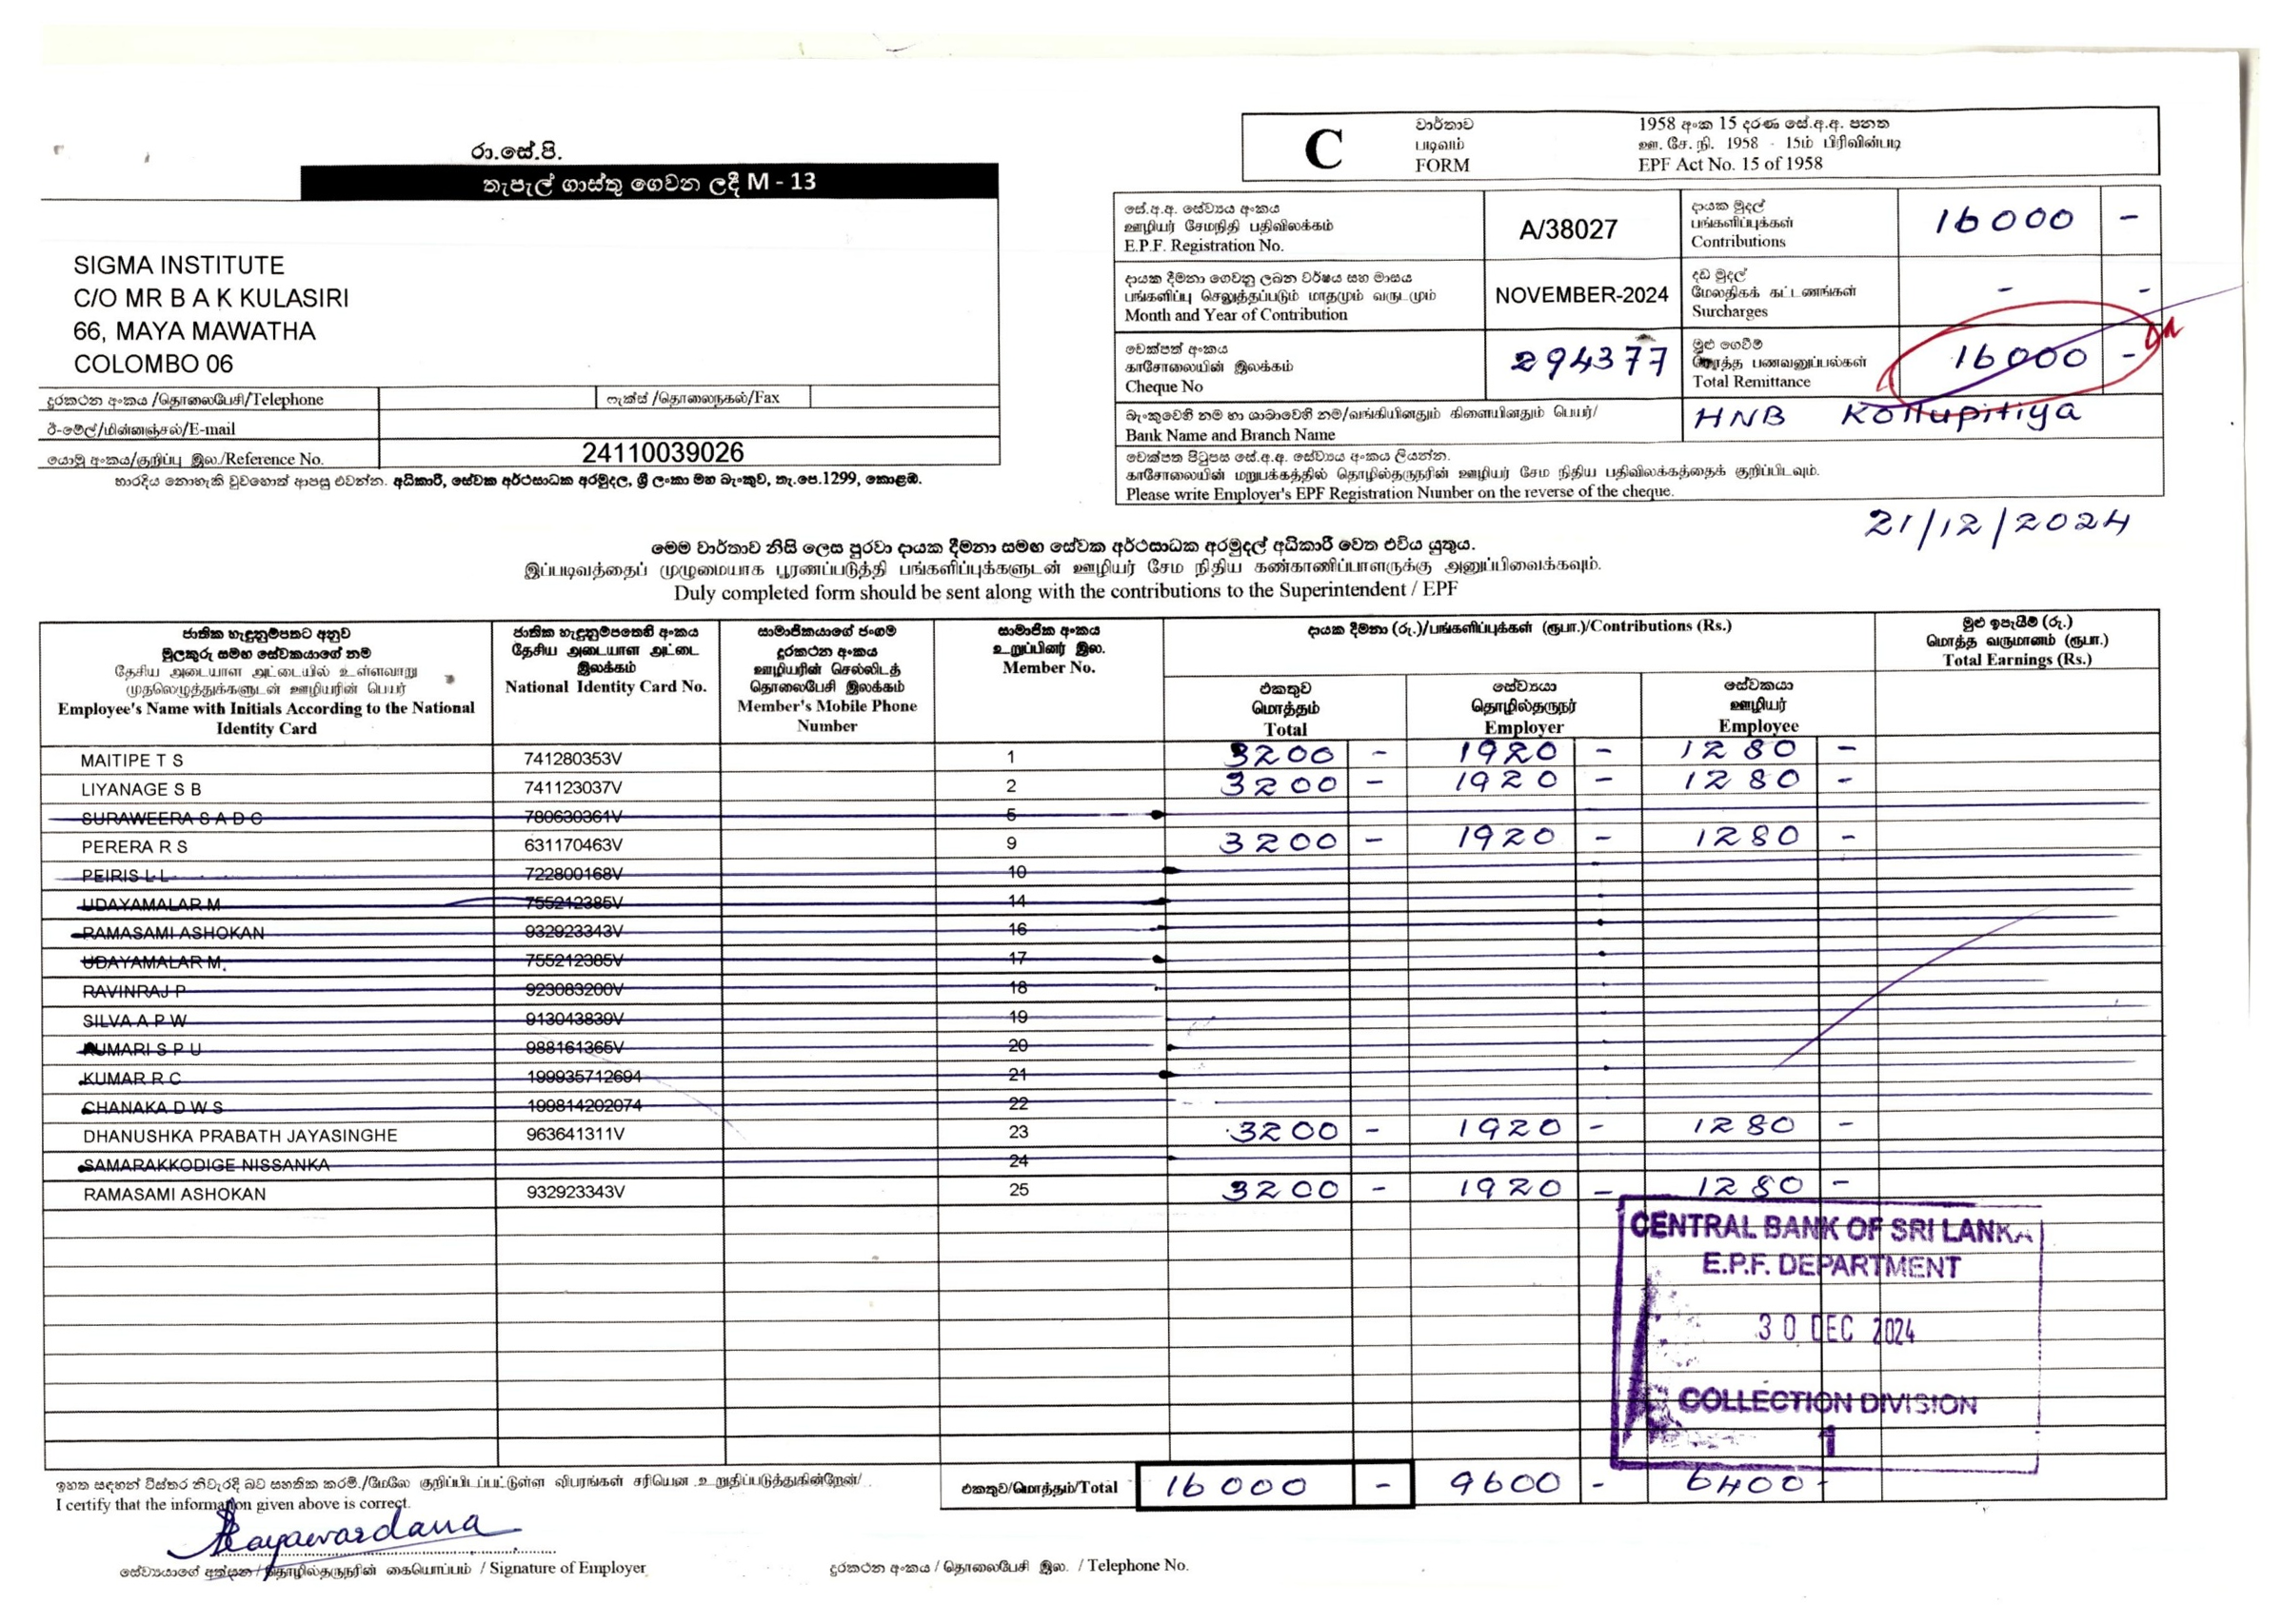 රා.සේ.පි.
තැපැල් ගාස්තු ගෙවන ලදී M - 13
SIGMA INSTITUTE
C/O MR B A K KULASIRI
66, MAYA MAWATHA
COLOMBO 06
දුරකථන අංකය /தொலைபேசி/Telephone
ෆැක්ස් /தொலைநகல்/Fax
ඊ-මේල්/மின்னஞ்சல்/E-mail
යොමු අංකය/குறிப்பு இல./Reference No. 24110039026
භාරදිය නොහැකි වුවහොත් ආපසු එවන්න. අධිකාරී, සේවක අර්ථසාධක අරමුදල, ශ්‍රී ලංකා මහ බැංකුව, තැ.පෙ.1299, කොළඹ.
C
වාර්තාව
படிவம்
FORM
1958 අංක 15 දරණ සේ.අ.අ. පනත
ஊ. சே. நி. 1958 - 15ம் பிரிவின்படி
EPF Act No. 15 of 1958
සේ.අ.අ. සේව්‍යය අංකය
ஊழியர் சேமநிதி பதிவிலக்கம்
E.P.F. Registration No.
A/38027
දායක මුදල්
பங்களிப்புக்கள்
Contributions
16000 -
දායක දීමනා ගෙවනු ලබන වර්ෂය සහ මාසය
பங்களிப்பு செலுத்தப்படும் மாதமும் வருடமும்
Month and Year of Contribution
NOVEMBER-2024
දඩ මුදල්
மேலதிகக் கட்டணங்கள்
Surcharges
- -
චෙක්පත් අංකය
காசோலையின் இலக்கம்
Cheque No
294377
මුළු ගෙවීම්
மொத்த பணவனுப்பல்கள்
Total Remittance
16000 -
බැංකුවෙහි නම හා ශාඛාවෙහි නම/வங்கியினதும் கிளையினதும் பெயர்/
Bank Name and Branch Name
HNB Kollupitiya
චෙක්පත පිටුපස සේ.අ.අ. සේව්‍යය අංකය ලියන්න.
காசோலையின் மறுபக்கத்தில் தொழில்தருநரின் ஊழியர் சேம நிதிய பதிவிலக்கத்தைக் குறிப்பிடவும்.
Please write Employer's EPF Registration Number on the reverse of the cheque.
21/12/2024
මෙම වාර්තාව නිසි ලෙස පුරවා දායක දීමනා සමඟ සේවක අර්ථසාධක අරමුදල් අධිකාරී වෙත එවිය යුතුය.
இப்படிவத்தைப் முழுமையாக பூரணப்படுத்தி பங்களிப்புக்களுடன் ஊழியர் சேம நிதிய கண்காணிப்பாளருக்கு அனுப்பிவைக்கவும்.
Duly completed form should be sent along with the contributions to the Superintendent / EPF
ජාතික හැඳුනුම්පතට අනුව
මුලකුරු සමඟ සේවකයාගේ නම
தேசிய அடையாள அட்டையில் உள்ளவாறு
முதலெழுத்துக்களுடன் ஊழியரின் பெயர்
Employee's Name with Initials According to the National
Identity Card
ජාතික හැඳුනුම්පතෙහි අංකය
தேசிய அடையாள அட்டை
இலக்கம்
National Identity Card No.
සාමාජිකයාගේ ජංගම
දුරකථන අංකය
ஊழியரின் செல்லிடத்
தொலைபேசி இலக்கம்
Member's Mobile Phone
Number
සාමාජික අංකය
உறுப்பினர் இல.
Member No.
දායක දීමනා (රු.)/பங்களிப்புக்கள் (ரூபா.)/Contributions (Rs.)
එකතුව
மொத்தம்
Total
සේව්‍යයා
தொழில்தருநர்
Employer
සේවකයා
ஊழியர்
Employee
මුළු ඉපැයීම් (රු.)
மொத்த வருமானம் (ரூபா.)
Total Earnings (Rs.)
MAITIPE T S 741280353V 1 3200 - 1920 - 1280 -
LIYANAGE S B 741123037V 2 3200 - 1920 - 1280 -
SURAWEERA S A D C 780630361V 5
PERERA R S 631170463V 9 3200 - 1920 - 1280 -
PEIRIS L L 722800168V 10
UDAYAMALAR M 755212385V 14
RAMASAMI ASHOKAN 932923343V 16
UDAYAMALAR M. 755212385V 17
RAVINRAJ P 923083200V 18
SILVA A P W 913043839V 19
KUMARI S P U 988161365V 20
KUMAR R C 199935712694 21
CHANAKA D W S 199814202074 22
DHANUSHKA PRABATH JAYASINGHE 963641311V 23 3200 - 1920 - 1280 -
SAMARAKKODIGE NISSANKA 24
RAMASAMI ASHOKAN 932923343V 25 3200 - 1920 - 1280 -
CENTRAL BANK OF SRI LANKA
E.P.F. DEPARTMENT
30 DEC 2024
COLLECTION DIVISION
1
ඉහත සඳහන් විස්තර නිවැරදි බව සහතික කරමි./மேலே குறிப்பிடப்பட்டுள்ள விபரங்கள் சரியென உறுதிப்படுத்துகின்றேன்/
I certify that the information given above is correct.
එකතුව/மொத்தம்/Total 16000 - 9600 - 6400 -
සේව්‍යයාගේ අත්සන / தொழில்தருநரின் கையொப்பம் / Signature of Employer
දුරකථන අංකය / தொலைபேசி இல. / Telephone No.